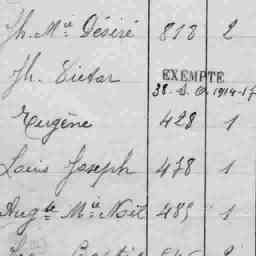 Jh. Mie Désiré 818 2
Jh. Victor EXEMPTÉ
38. S. O. 1914-17
Eugène 428 1
Louis Joseph 478 1
Augte Mie Noël 485 1